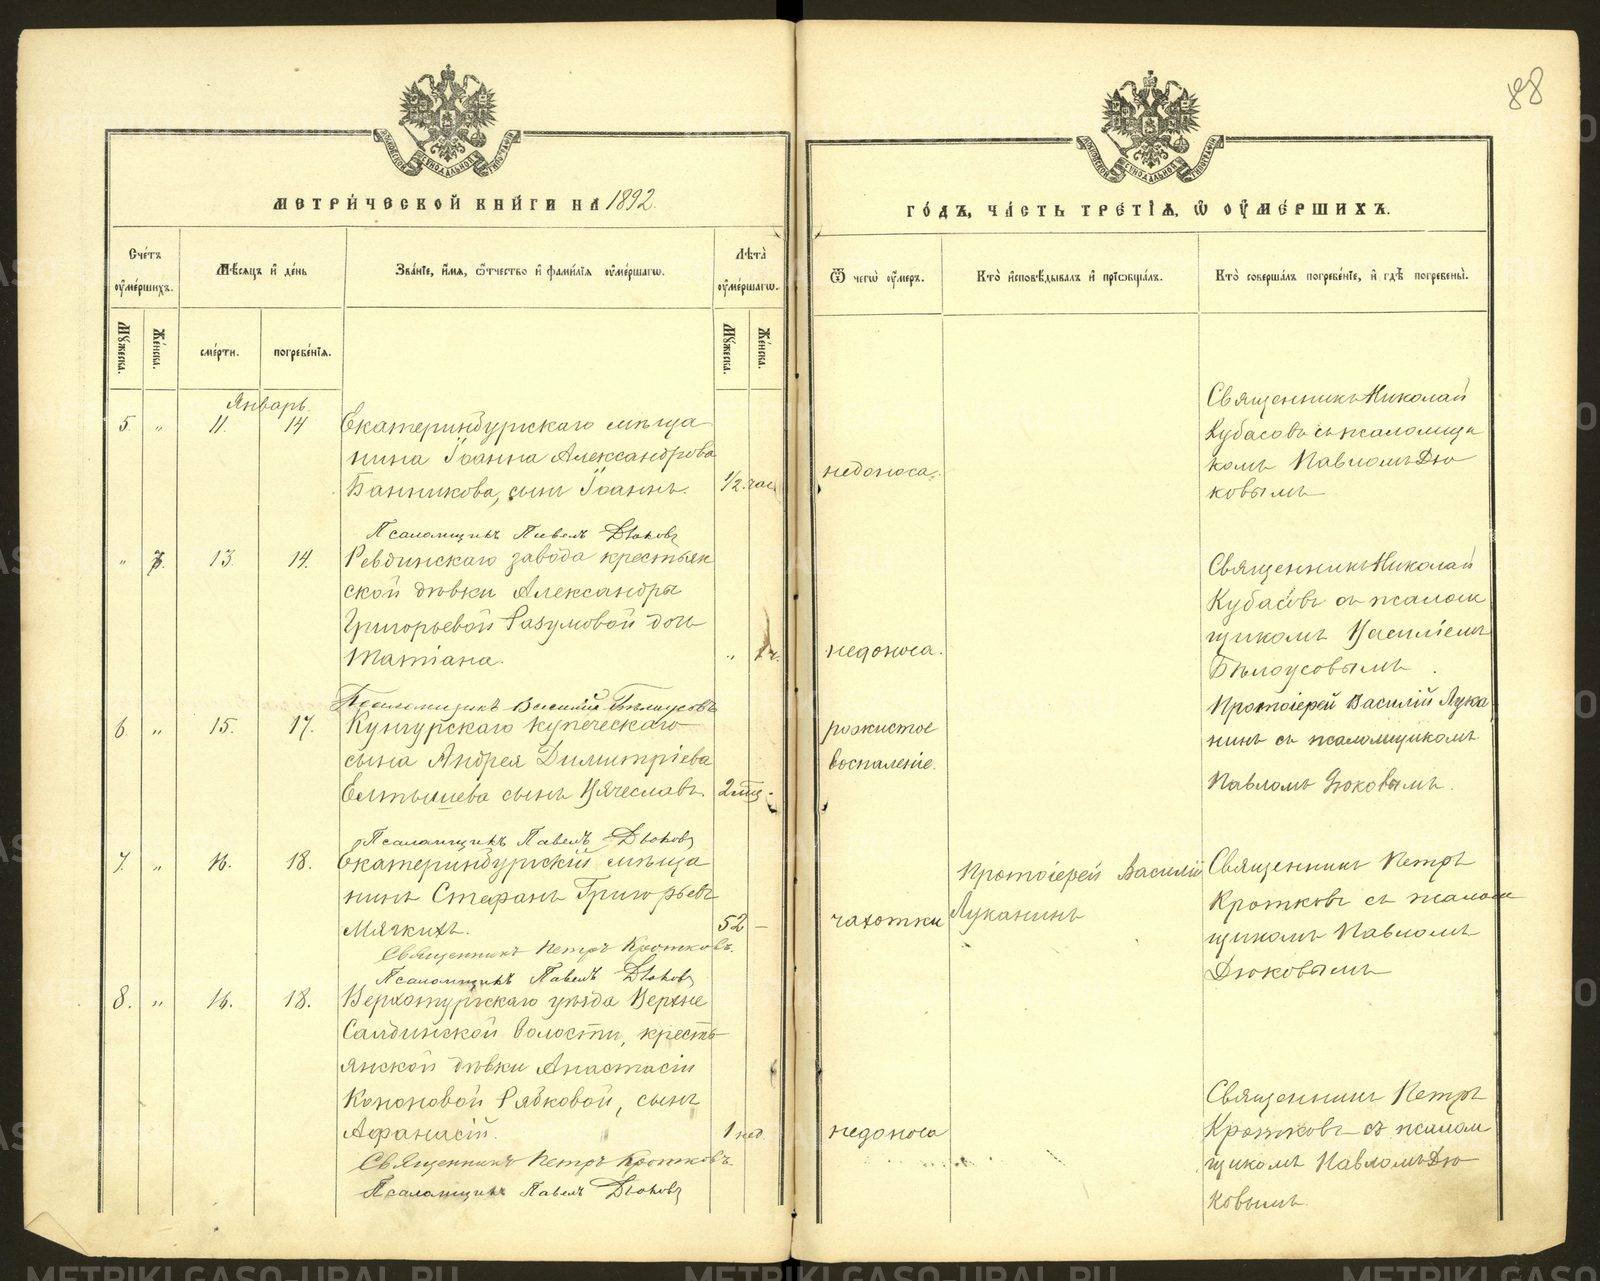 88
МЕТРИ́ЧЕСКОЙ КНИ́ГИ НА 1892.
Сче́тъ оу҆ме́ршихъ.
Мѣ́сяцъ и҆ де́нь
Зва́нїе, и҆́мя, ѻ҆́тчество и҆ фами́лїя оу҆ме́ршагѡ.
Лѣ́та оу҆ме́ршагѡ.
Мꙋ́жеска.
Же́нска.
сме́рти.
погребе́нїя.
Мꙋ́жеска.
Же́нска.
Январь.
5. „ 11. 14 Екатеринбургскаго мѣща
нина Іоанна Александрова
Банникова, сынъ Іоаннъ. 1/2 час
Псаломщикъ Павелъ Дюковъ
„ 3. 13. 14. Ревдинскаго завода крестьян
ской дѣвки Александры
Григорьевой Разумовой дочь
Татіана. „ 1 ч.
Псаломщикъ Василій Бѣлоусовъ
6. „ 15. 17. Кунгурскаго купеческаго
сына Андрея Димитріева
Елтышева сынъ Вячеславъ. 2 мѣс.
Псаломщикъ Павелъ Дюковъ
7. „ 16. 18. Екатеринбургскій мѣща
нинъ Стефанъ Григорьевъ
Мягкихъ. 52 –
Священникъ Петръ Кротковъ.
Псаломщикъ Павелъ Дюковъ
8. „ 16. 18. Верхотурскаго уѣзда Верхне
Салдинской волости, кресть
янской дѣвки Анастасіи
Кононовой Рябковой, сынъ
Афанасій. 1 нед.
Священникъ Петръ Кротковъ.
Псаломщикъ Павелъ Дюковъ
ГО́ДЪ, ЧА́СТЬ ТРЕ́ТІЯ, Ѡ҆ ОУ҆МЕ́РШИХЪ.
Ѿ чегѡ̀ оу҆́меръ.
Кто̀ и҆сповѣ́дывалъ и҆ прїѡбща́лъ.
Кто̀ соверша́лъ погребе́нїе, и҆ гдѣ̀ погребены̀.
недоноса.
Священникъ Николай
Кубасовъ съ псаломщи
комъ Павломъ Дю
ковымъ
недоноса.
Священникъ Николай
Кубасовъ съ псалом
щикомъ Василіемъ
Бѣлоусовымъ.
рожистое
воспаленіе.
Протоіерей Василій Лука
нинъ съ псаломщикомъ
Павломъ Дюковымъ.
чахотки
Протоіерей Василій
Луканинъ
Священникъ Петръ
Кротковъ съ псалом
щикомъ Павломъ
Дюковымъ
недоноса
Священникъ Петръ
Кротковъ съ псалом
щикомъ Павломъ Дю
ковымъ.
METRIKI.GASO-URAL.RU